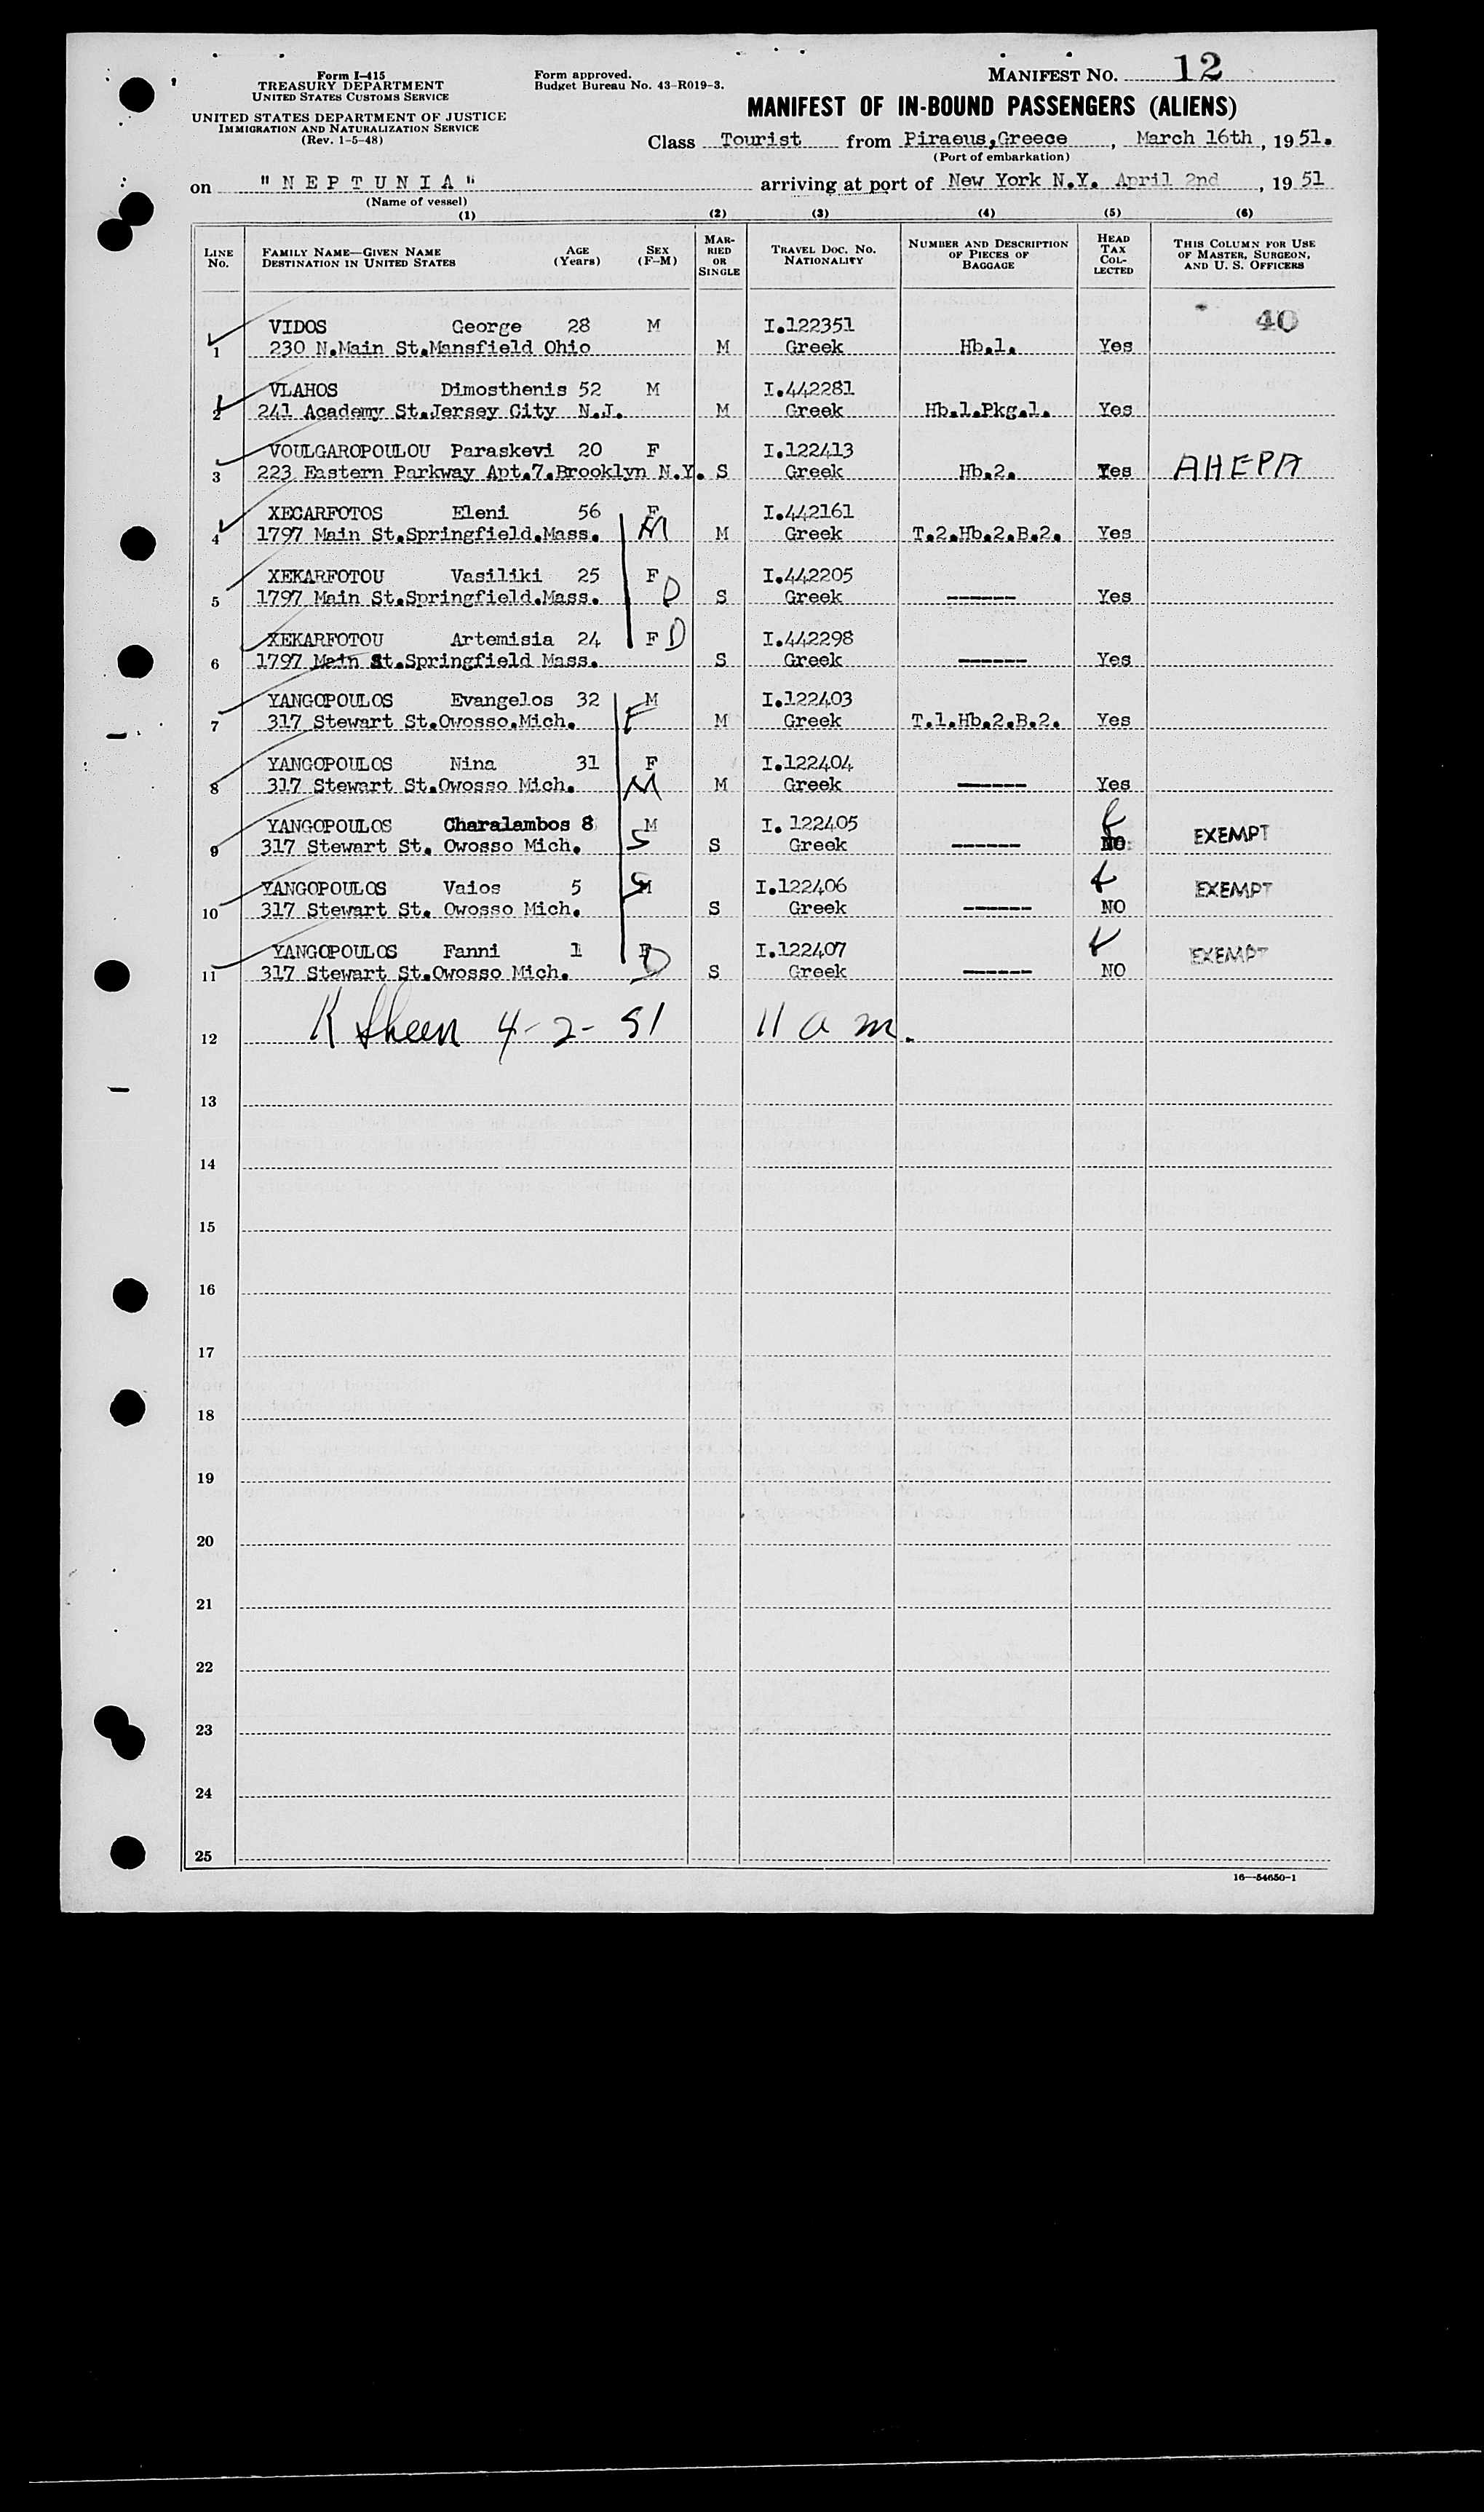 Form I-415
TREASURY DEPARTMENT
UNITED STATES CUSTOMS SERVICE
UNITED STATES DEPARTMENT OF JUSTICE
IMMIGRATION AND NATURALIZATION SERVICE
(Rev. 1-5-48)
Form approved.
Budget Bureau No. 43-R019-3.
MANIFEST NO. 12
MANIFEST OF IN-BOUND PASSENGERS (ALIENS)
Class Tourist from Piraeus,Greece, March 16th, 1951.
(Port of embarkation)
on "NEPTUNIA" arriving at port of New York N.Y. April 2nd, 1951
(Name of vessel)
(1) (2) (3) (4) (5) (6)
LINE NO. FAMILY NAME—GIVEN NAME DESTINATION IN UNITED STATES AGE (Years) SEX (F-M) MARRIED OR SINGLE TRAVEL DOC. NO. NATIONALITY NUMBER AND DESCRIPTION OF PIECES OF BAGGAGE HEAD TAX COLLECTED THIS COLUMN FOR USE OF MASTER, SURGEON, AND U. S. OFFICERS
VIDOS George 28 M I.122351 40
1 230 N.Main St.Mansfield Ohio M Greek Hb.1. Yes
VLAHOS Dimosthenis 52 M I.442281
2 241 Academy St.Jersey City N.J. M Greek Hb.1.Pkg.1. Yes
VOULGAROPOULOU Paraskevi 20 F I.122413
3 223 Eastern Parkway Apt.7.Brooklyn N.Y. S Greek Hb.2. Yes AHEPA
XECARFOTOS Eleni 56 F I.442161
4 1797 Main St.Springfield.Mass. M M Greek T.2.Hb.2.B.2. Yes
XEKARFOTOU Vasiliki 25 F I.442205
5 1797 Main St.Springfield.Mass. D S Greek ------ Yes
XEKARFOTOU Artemisia 24 F D I.442298
6 1797 Main St.Springfield Mass. S Greek ------ Yes
YANGOPOULOS Evangelos 32 M I.122403
7 317 Stewart St.Owosso.Mich. F M Greek T.1.Hb.2.B.2. Yes
YANGOPOULOS Nina 31 F I.122404
8 317 Stewart St.Owosso Mich. M M Greek ------ Yes
YANGOPOULOS Charalambos 8 M I. 122405
9 317 Stewart St. Owosso Mich. S S Greek ------ NO EXEMPT
YANGOPOULOS Vaios 5 S M I.122406 EXEMPT
10 317 Stewart St. Owosso Mich. S Greek ------ NO
YANGOPOULOS Fanni 1 F I.122407 EXEMPT
11 317 Stewart St.Owosso Mich. D S Greek ------ NO
12 K Sheen 4-2-51 11 a m.
13
14
15
16
17
18
19
20
21
22
23
24
25
16—54650-1